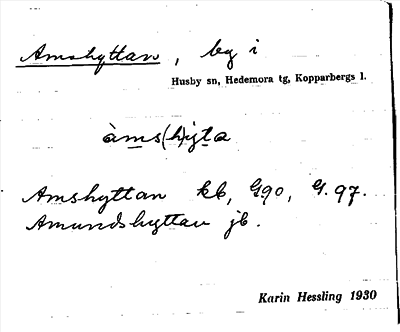 Amshyttan, by i
Husby sn, Hedemora tg, Kopparbergs l.
àms(h)yta
Amshyttan kb, G.90, G.97.
Amundshyttan jb.
Karin Hessling 1930